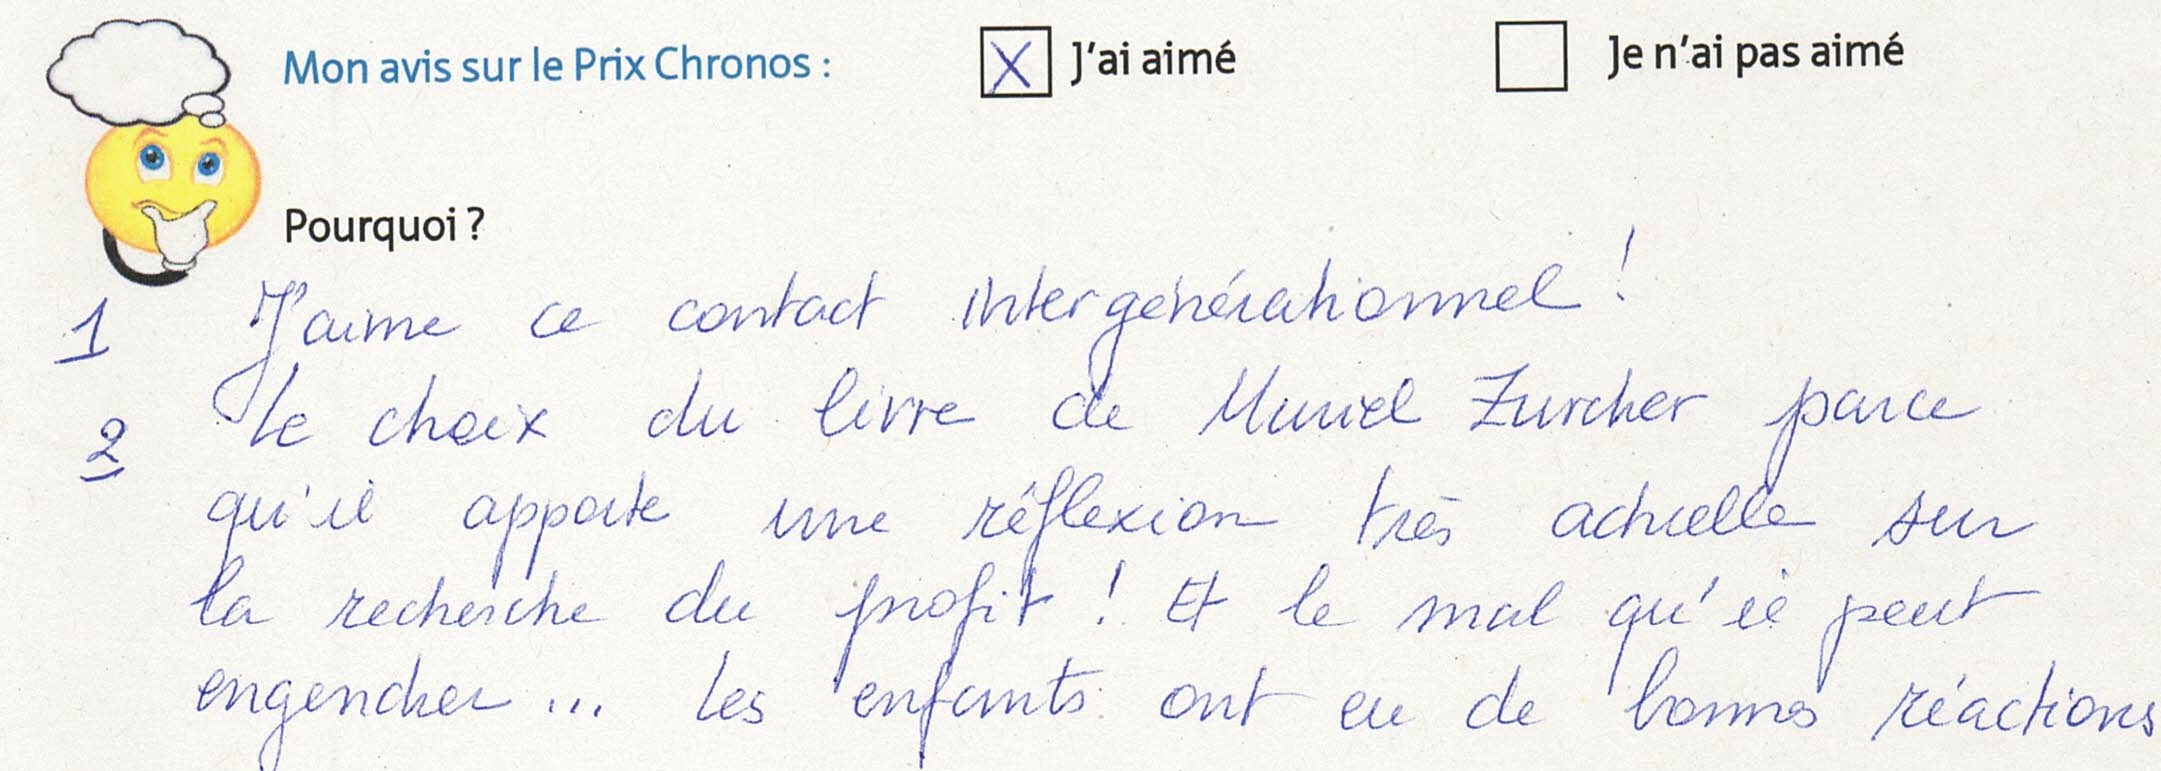 Mon avis sur le Prix Chronos : X J'ai aimé Je n'ai pas aimé
Pourquoi ?
1 J'aime ce contact intergénérationnel !
2 Le choix du livre de Muriel Zurcher parce
qu'il apporte une réflexion très actuelle sur
la recherche du profit ! Et le mal qu'il peut
engendrer ... Les enfants ont eu de bonnes réactions